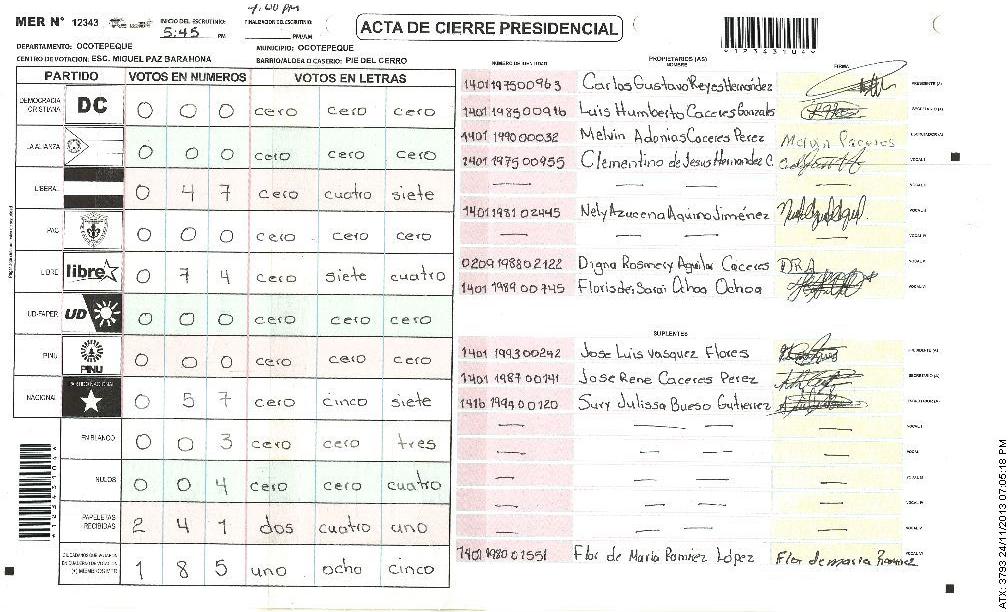 7:00 PM
MER Nº 12343 INICIO DEL ESCRUTINIO: 5:45 PM FINALIZACION DEL ESCRUTINIO: PM/AM
ACTA DE CIERRE PRESIDENCIAL
*12343104*
DEPARTAMENTO: OCOTEPEQUE MUNICIPIO: OCOTEPEQUE
CENTRO DE VOTACION: ESC. MIGUEL PAZ BARAHONA BARRIO/ALDEA O CASERIO: PIE DEL CERRO
PARTIDO VOTOS EN NUMEROS VOTOS EN LETRAS
DEMOCRACIA CRISTIANA DC 0 0 0 cero cero cero
LA ALIANZA 0 0 0 cero cero cero
LIBERAL 0 4 7 cero cuatro siete
PAC 0 0 0 cero cero cero
LIBRE libre 0 7 4 cero siete cuatro
UD-FAPER UD 0 0 0 cero cero cero
PINU PINU 0 0 0 cero cero cero
NACIONAL PARTIDO NACIONAL 0 5 7 cero cinco siete
EN BLANCO 0 0 3 cero cero tres
NULOS 0 0 4 cero cero cuatro
PAPELETAS RECIBIDAS 2 4 1 dos cuatro uno
CIUDADANOS QUE VOTARON EN CUADERNO DE VOTACION (+) MIEMBROS MER 1 8 5 uno ocho cinco
*12343104*
NUMERO DE IDENTIDAD PROPIETARIOS (AS) NOMBRE FIRMA
1401197500963 Carlos Gustavo Reyes Hernández PRESIDENTE (A)
1401198500916 Luis Humberto Caceres Gonzales SECRETARIO (A)
1401199000032 Melvin Adonias Caceres Perez Melvin Caceres ESCRUTADOR (A)
1401197500955 Clementino de Jesus Hernandez C. VOCAL I
VOCAL II
1401198102445 Nely Azucena Aquino Jiménez VOCAL III
VOCAL IV
0209198802122 Digna Rosmery Aguilar Caceres DRA VOCAL V
1401198900745 Florisdei Sarai Ochoa Ochoa VOCAL VI
SUPLENTES
1401199300242 Jose Luis Vasquez Flores PRESIDENTE (A)
1401198700141 Jose Rene Caceres Perez SECRETARIO (A)
1416199400120 Sury Julissa Bueso Gutierrez ESCRUTADOR (A)
VOCAL I
VOCAL II
VOCAL III
VOCAL IV
VOCAL V
1401198001551 Flor de Maria Ramirez López Flor de maria Ramirez VOCAL VI
ATX: 3793 24/11/2013 07:05:18 PM